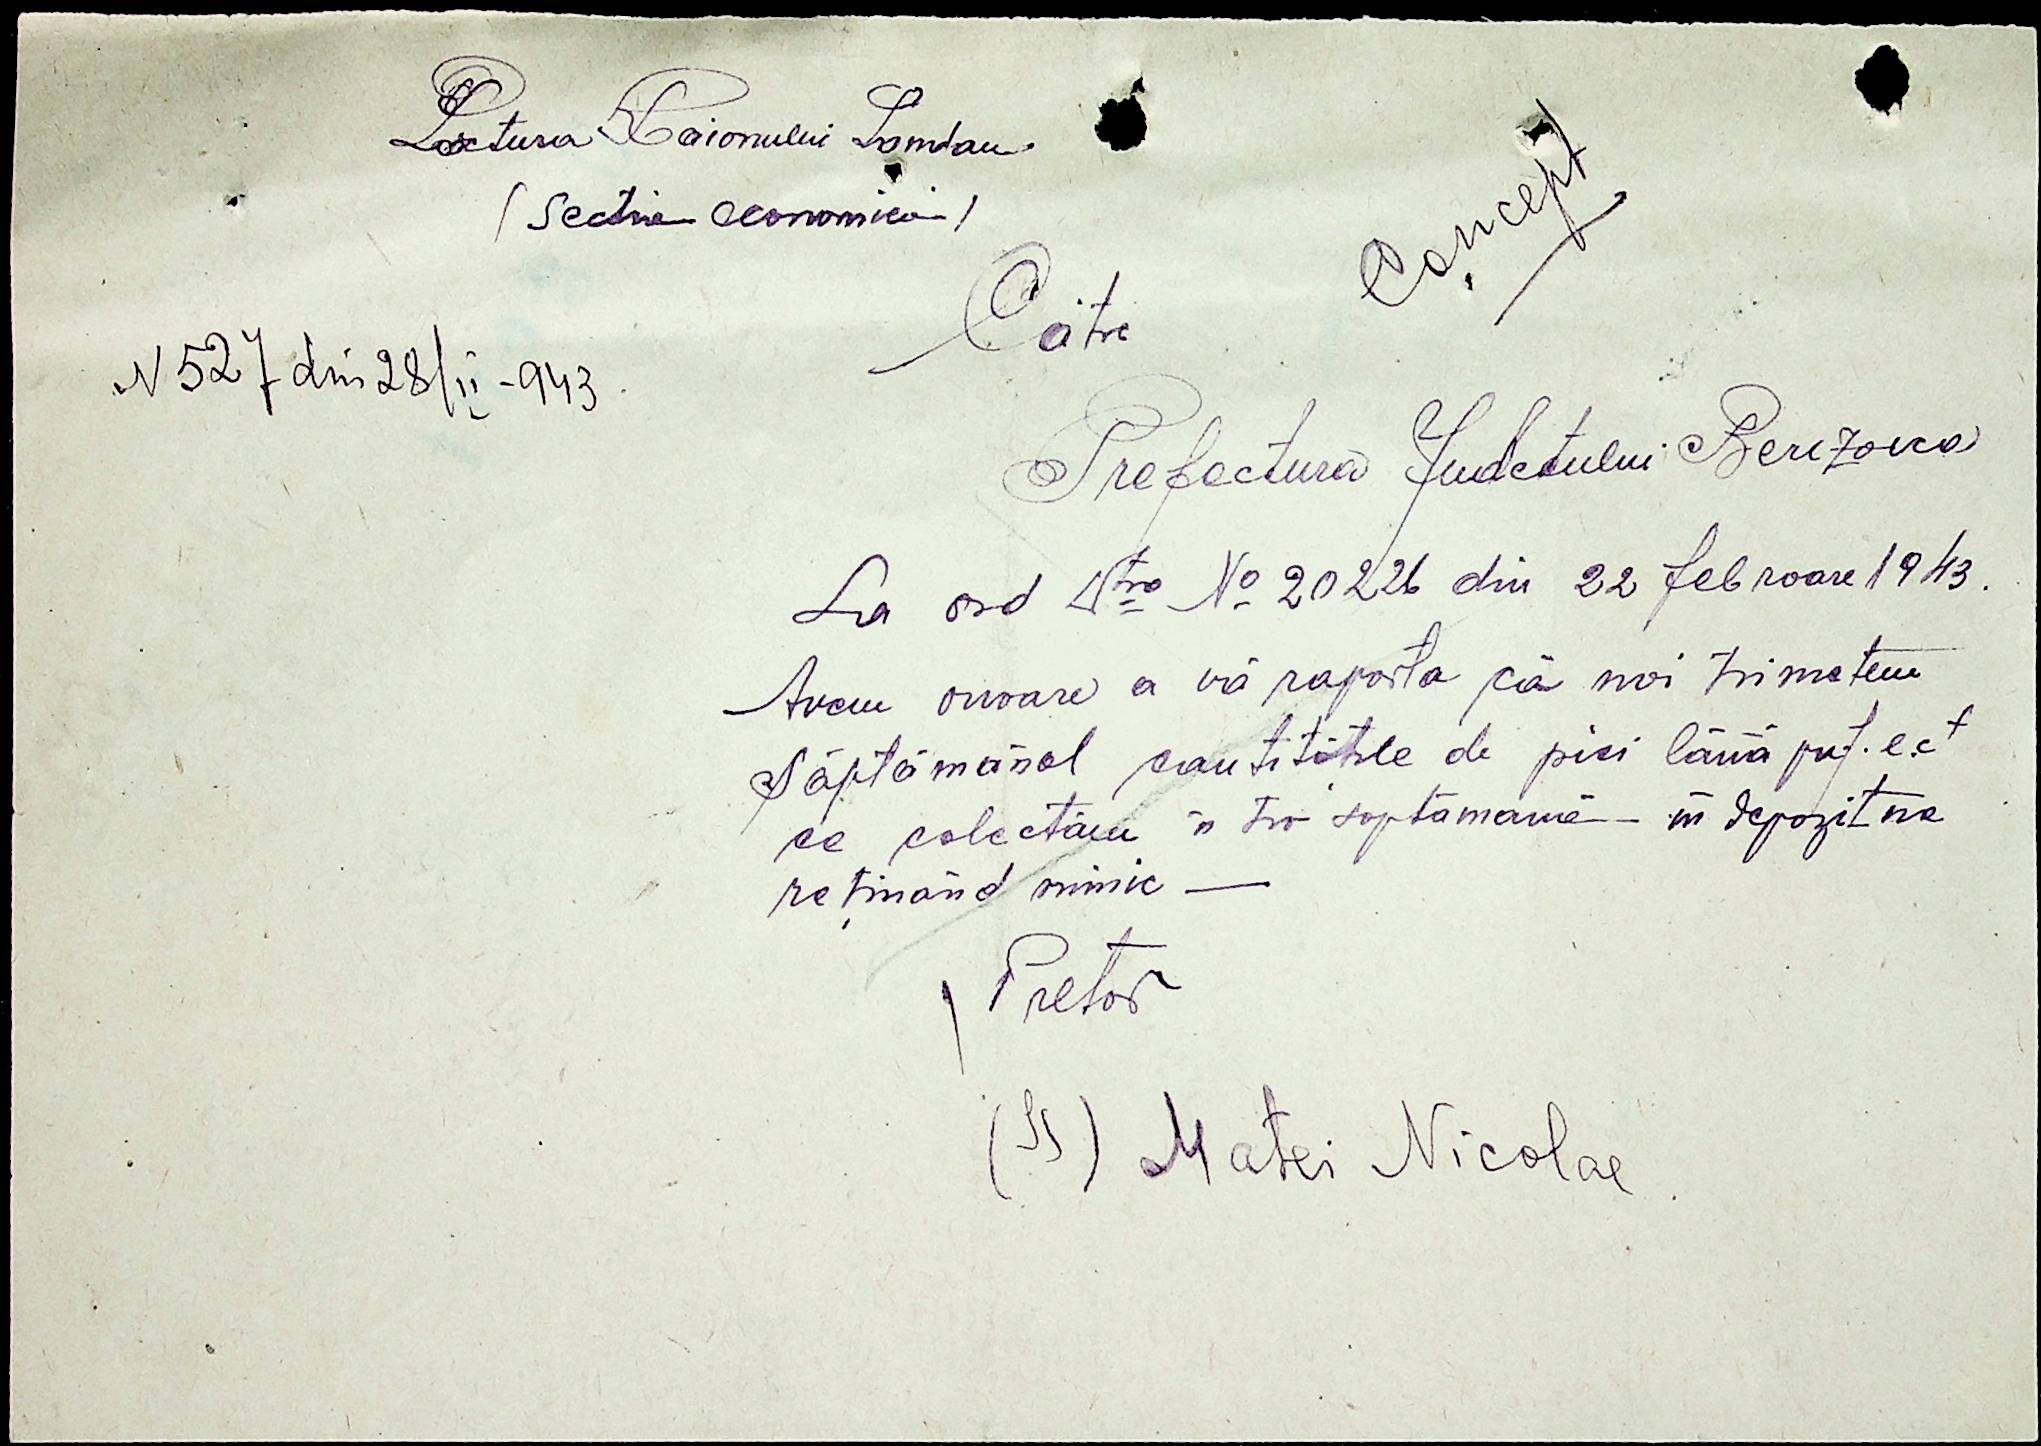 Pretura Raionului Landau
/ Sectia economică /
Concept
Către
N 527 din 28/II - 943.
Prefectura Judetului Berezovca
La ord Dtră No 20226 din 22 februare 1943.
Avem onoare a vă raporta că noi trimetem
săptămânal cantitătile de piei lână puf. e.ct
ce colectăm în tro septămană - în depozit ne
reținând nimic —
/ Pretor
(ss) Matei Nicolae.